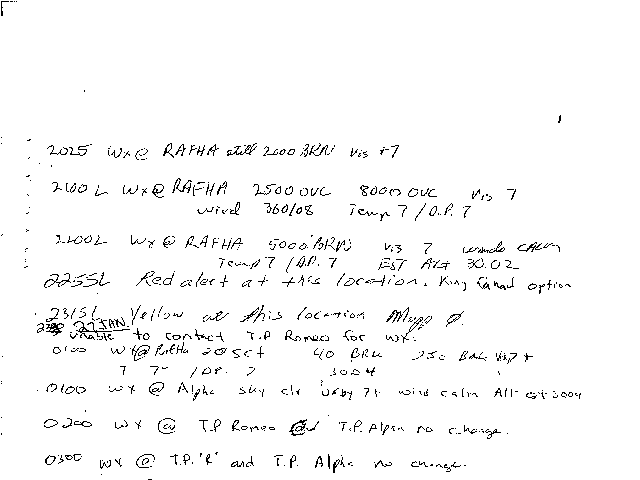 2025 Wx @ RAFHA still 2000 BRN Vis +7
2100 L Wx @ RAFHA 2500 OVC 8000 OVC Vis 7
Wind 360/08 Temp 7 / D.P. 7
2200L Wx @ RAFHA 5000 BRN Vis 7 winds CALM
Temp 7 / DP. 7 EST Alt 30.02
2255L Red alert at this location. King Fahad option
2315L Yellow at this location Mopp Ø.
27 JAN unable to contact T.P. Romeo for wx.
0100 wx @ Rafha 20 Sct 40 BRK 250 Brk Vis 7+
T 7 / DP. 7 3004
0100 wx @ Alpha sky clr 7+ wind calm Alt est 3004
0200 wx @ T.P. Romeo T.P. Alpha no change.
0300 wx @ T.P. 'R' and T.P. Alpha no change.